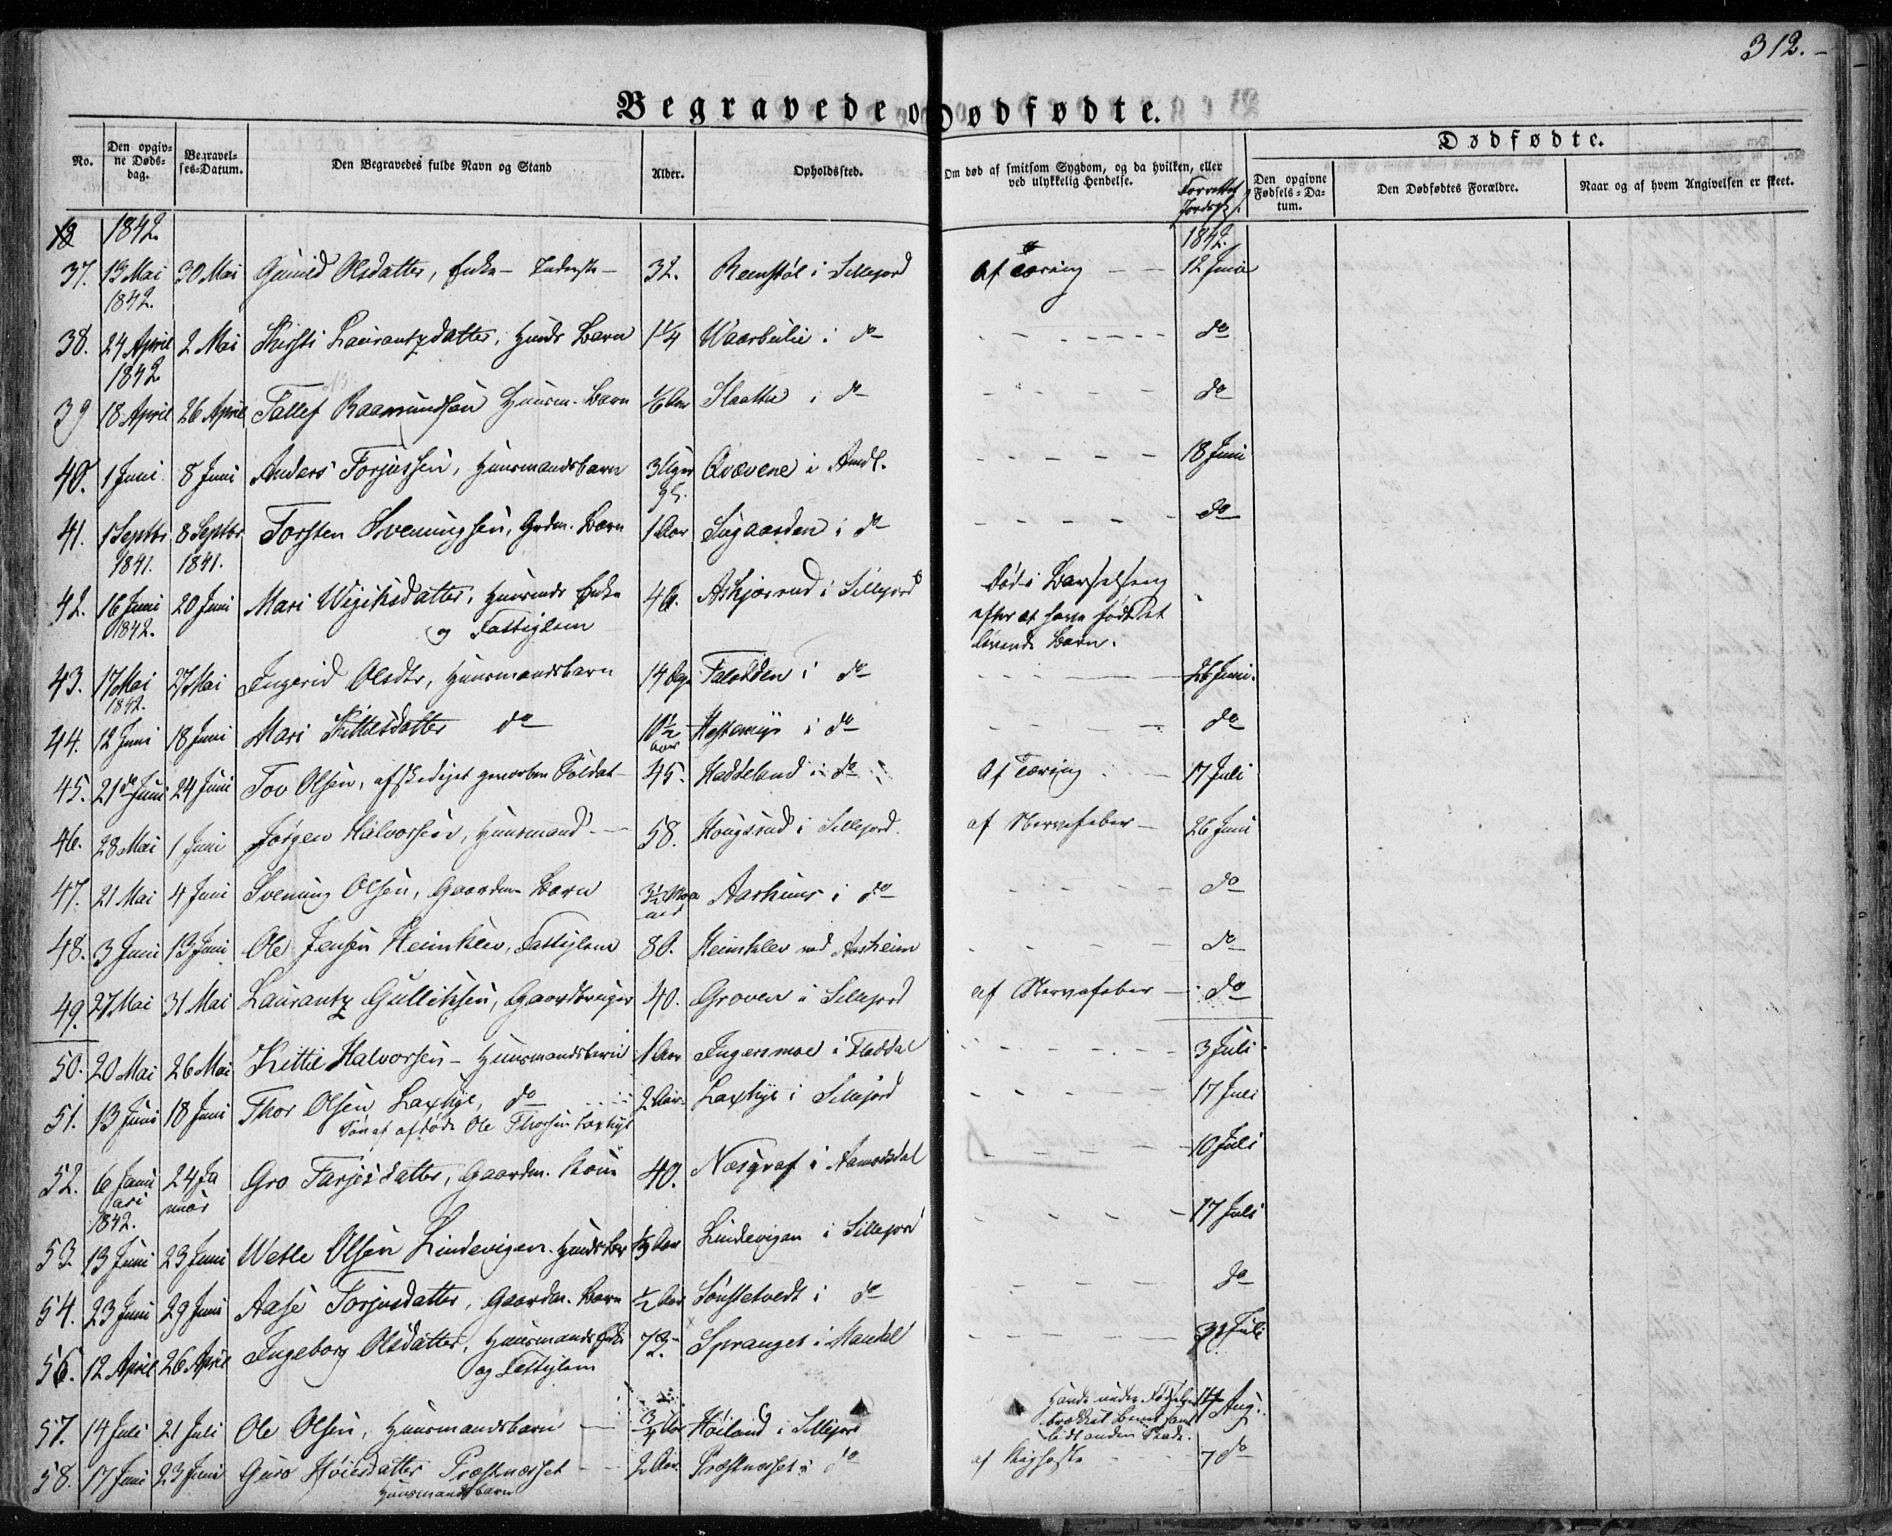 312.
Begravede o Dødfødte.
No.
Den opgivne Døds-dag.
Begravelses-Datum.
Den Begravedes fulde Navn og Stand
Alder.
Opholdssted.
Om død af smitsom Sygdom, og da hvilken, eller ved ulykkelig Hendelse.
Dødfødte.
Den opgivne Fødsels-Datum.
Den Dødfødtes Forældre.
Naar og af hvem Angivelsen er skeet.
1842. 1842.
37. 13 Mai 30 Mai Gunild Olsdatter, Enke - 32. i Sillejord Af Tæring 12 Juni
1842.
38. 24 April 2 Mai Kirsti Laurantzdatter, Barn 1 1/4 Waarbulie i do do
1842
39 18 April 26 April Tallef Raamundsen Huusm. Barn 1/6 Aar Slaatta i do do
40. 1 Juni 8 Juni Anders Torjussen, Huusmandsbarn 3 Uger Qvævene i 18 Juni
41. 1 Septbr 8 Septbr Torsten Sveinungsen, Grdm. Barn 1 Aar Sugaarden i do do
1841. 1841.
42. 16 Juni 20 Juni Mari Wigiksdatter, Enke 46. Askjærrud i Sillejord død i Barselseng
1842. og Fattiglem efter at have født et
levende Barn.
43. 17 Mai 27 Mai Ingerid Olsdtr, Huusmandsbarn 14 i do 26 Juni.
1842.
44. 12 Juni 18 Juni Mari Kittilsdatter do 10 1/2 Aar Hestemyr i do do
45. 21de Juni 24 Juni Tov Olsen, afskediget geworben Soldat 45. Haddeland i do Af Tæring 17 Juli
46. 28 Mai 1 Juni Jørgen Halvorsen, Huusmand 58. Hougsrud i Sillejord. af Nervefeber 26 Juni
47. 21 Mai 4 Juni Sveinung Olsen, Gaardm. Barn 3 1/2 Maaned Aarhuus i do do
48. 3 Juni 13 Juni Ole Jensen Heimklev, Fattiglem 80. Heimklev ved Aasheim do
49. 27 Mai 31 Mai Laurantz Gulliksen, Gaardbruger 40. Groven i Sillejord af Nervefeber do
50. 20 Mai 26 Mai Kittil Halvorsen - Huusmandsbarn 1 Aar Ingersmoe i Fladdal 3 Juli
51. 13 Juni 18 Juni Thor Olsen Laxhye, do 2 Aar Laxhye i Sillejord 17 Juli
Søn af afdøde Ole Thorsen Laxhye
52. 6 Januari 24 Januar Gro Tarjeisdatter, Gaardm. Kone 40. Næsgraf i Aamotsdal 10 Juli
1842.
53. 13 Juni 23 Juni Wetle Olsen Lindevigen. 1/3 Aar Lindevigen i Sillejord 17 Juli
54. 23 Juni 29 Juni Aase Torjusdatter, Gaardm. Barn 1/2 Aar Sønstetvedt i do do
56. 12 April 26 April Ingeborg Olsdatter, Huusmands Enke 72. Spranget i Mandal 31 Juli
og Fattiglem
57. 14 Juli 21 Juli Ole Olsen, Huusmandsbarn 3/4 Aar Høiland i Sillejord Havde under Fødselen 14 Aug.
brækket Benet samt
lidt anden Skade.
58. 17 Juni 23 Juni Guro Høiesdatter Præstnæsset 2 Aar Præstnæsset i do af Kighoste 7 do
Huusmandsbarn